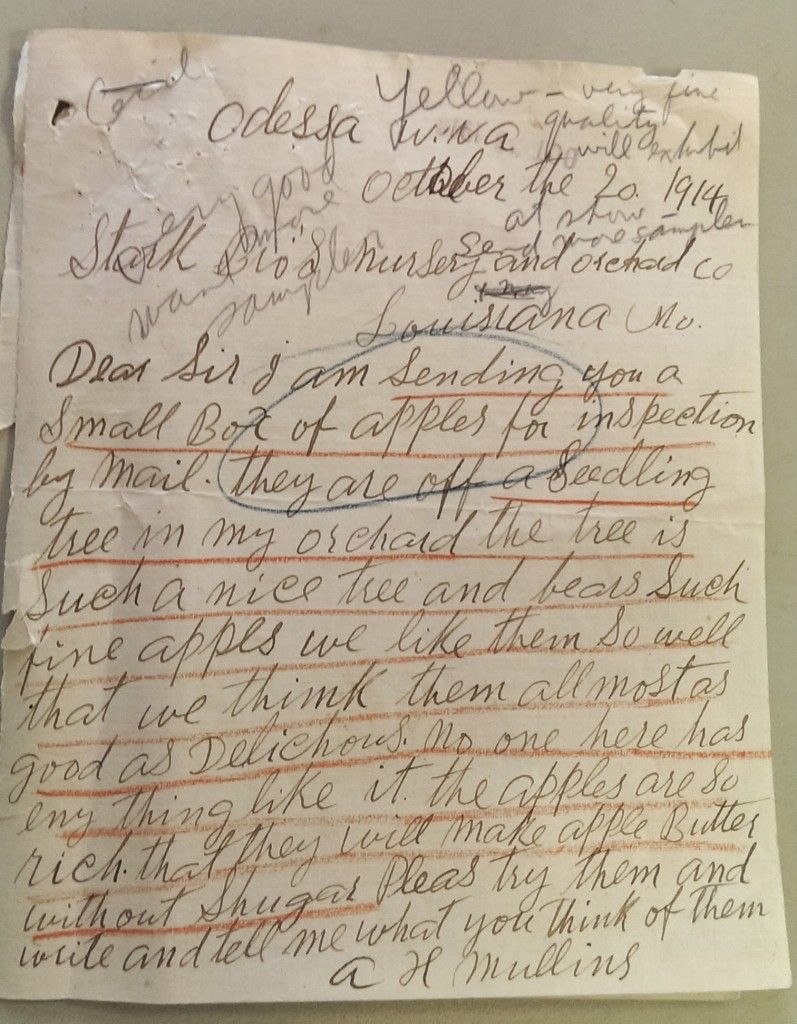 Yellow – very fine
quality
will exhibit
at show –
Send more samples
very good
want more
samples
Odessa W.Va
October the 20. 1914
Stark Bro's Nursery and orchard co
Louisiana Mo.
Dear Sir I am Sending you a
Small Box of apples for inspection
by Mail. they are off a Seedling
tree in my orchard the tree is
Such a nice tree and bears Such
fine apples we like them So well
that we think them allmost as
good as Delichous. No one here has
eny thing like it. the apples are So
rich. that they will make apple Butter
without Shugar Pleas try them and
write and tell me what you think of them
A H Mullins